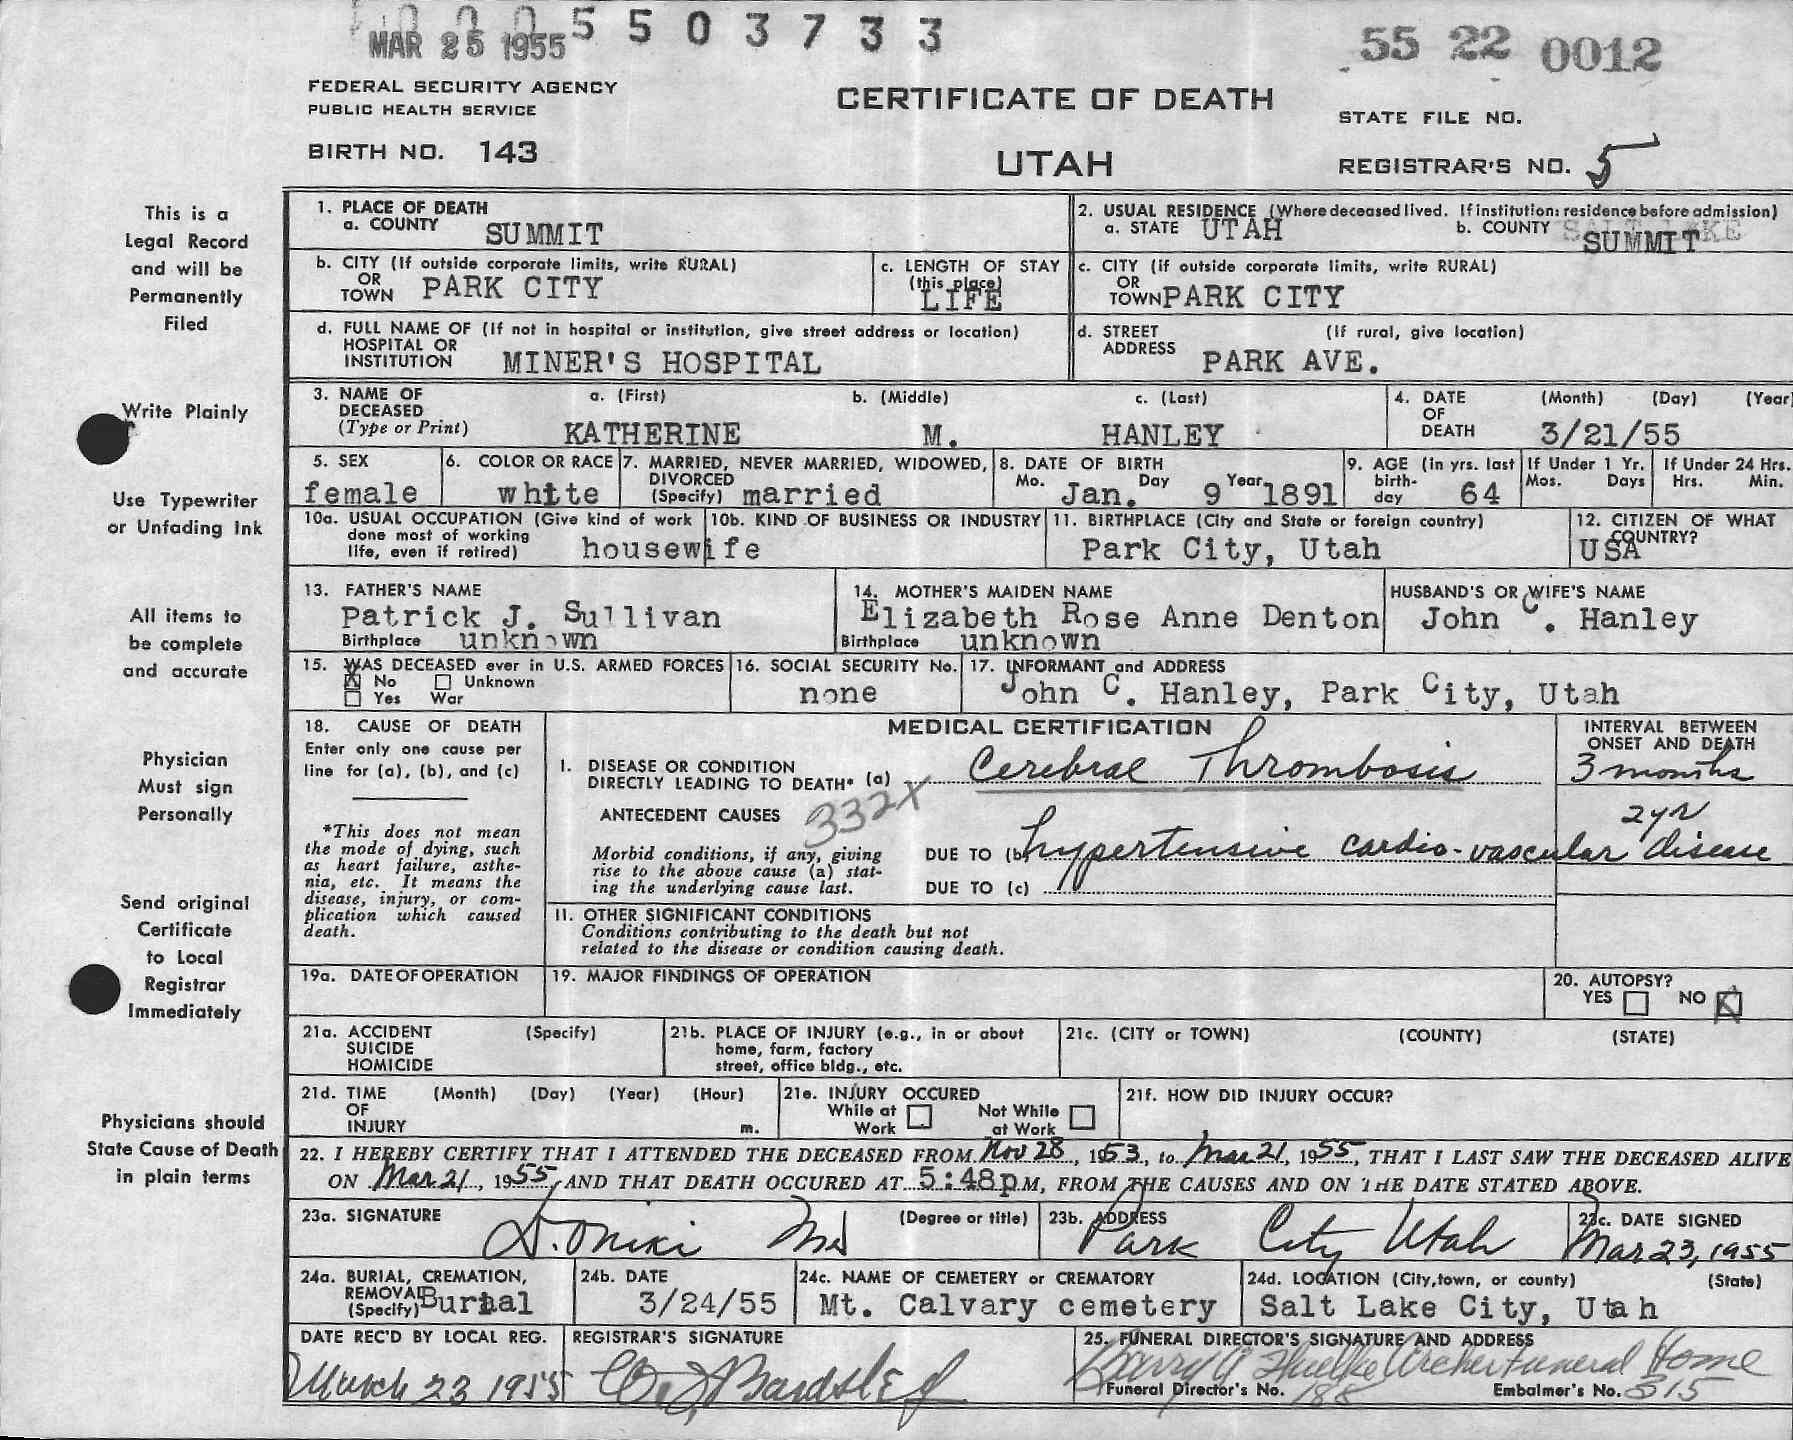 MAR 25 1955 5 5 0 3 7 3 3
55 22 0012
FEDERAL SECURITY AGENCY
PUBLIC HEALTH SERVICE
CERTIFICATE OF DEATH
STATE FILE NO.
BIRTH NO. 143
UTAH
REGISTRAR'S NO. 5
This is a
Legal Record
and will be
Permanently
Filed
Write Plainly
Use Typewriter
or Unfading Ink
All items to
be complete
and accurate
Physician
Must sign
Personally
Send original
Certificate
to Local
Registrar
Immediately
Physicians should
State Cause of Death
in plain terms
1. PLACE OF DEATH
a. COUNTY SUMMIT
2. USUAL RESIDENCE (Where deceased lived. If institution: residence before admission)
a. STATE UTAH b. COUNTY SUMMIT
b. CITY (If outside corporate limits, write RURAL)
OR
TOWN PARK CITY
c. LENGTH OF STAY
(this place)
LIFE
c. CITY (if outside corporate limits, write RURAL)
OR
TOWN PARK CITY
d. FULL NAME OF (If not in hospital or institution, give street address or location)
HOSPITAL OR
INSTITUTION MINER'S HOSPITAL
d. STREET (If rural, give location)
ADDRESS PARK AVE.
3. NAME OF a. (First) b. (Middle) c. (Last)
DECEASED
(Type or Print) KATHERINE M. HANLEY
4. DATE (Month) (Day) (Year)
OF
DEATH 3/21/55
5. SEX
female
6. COLOR OR RACE
white
7. MARRIED, NEVER MARRIED, WIDOWED,
DIVORCED
(Specify) married
8. DATE OF BIRTH
Mo. Jan. Day 9 Year 1891
9. AGE (in yrs. last
birth-
day 64
If Under 1 Yr.
Mos. Days
If Under 24 Hrs.
Hrs. Min.
10a. USUAL OCCUPATION (Give kind of work
done most of working
life, even if retired) housewife
10b. KIND OF BUSINESS OR INDUSTRY
11. BIRTHPLACE (City and State or foreign country)
Park City, Utah
12. CITIZEN OF WHAT
COUNTRY?
USA
13. FATHER'S NAME
Patrick J. Sullivan
Birthplace unknown
14. MOTHER'S MAIDEN NAME
Elizabeth Rose Anne Denton
Birthplace unknown
HUSBAND'S OR WIFE'S NAME
John C. Hanley
15. WAS DECEASED ever in U.S. ARMED FORCES
X No Unknown
Yes War
16. SOCIAL SECURITY No.
none
17. INFORMANT and ADDRESS
John C. Hanley, Park City, Utah
18. CAUSE OF DEATH
Enter only one cause per
line for (a), (b), and (c)
*This does not mean
the mode of dying, such
as heart failure, asthe-
nia, etc. It means the
disease, injury, or com-
plication which caused
death.
MEDICAL CERTIFICATION
INTERVAL BETWEEN
ONSET AND DEATH
I. DISEASE OR CONDITION
DIRECTLY LEADING TO DEATH* (a) Cerebral Thrombosis 3 months
ANTECEDENT CAUSES 332X
2 yr
Morbid conditions, if any, giving
rise to the above cause (a) stat-
ing the underlying cause last.
DUE TO (b) hypertensive cardio-vascular disease
DUE TO (c)
II. OTHER SIGNIFICANT CONDITIONS
Conditions contributing to the death but not
related to the disease or condition causing death.
19a. DATE OF OPERATION
19. MAJOR FINDINGS OF OPERATION
20. AUTOPSY?
YES NO X
21a. ACCIDENT (Specify)
SUICIDE
HOMICIDE
21b. PLACE OF INJURY (e.g., in or about
home, farm, factory
street, office bldg., etc.
21c. (CITY or TOWN) (COUNTY) (STATE)
21d. TIME (Month) (Day) (Year) (Hour)
OF
INJURY m.
21e. INJURY OCCURED
While at Work Not While at Work
21f. HOW DID INJURY OCCUR?
22. I HEREBY CERTIFY THAT I ATTENDED THE DECEASED FROM Nov 28, 1953, to Mar 21, 1955, THAT I LAST SAW THE DECEASED ALIVE
ON Mar 21, 1955, AND THAT DEATH OCCURED AT 5:48 p M, FROM THE CAUSES AND ON THE DATE STATED ABOVE.
23a. SIGNATURE (Degree or title)
MD
23b. ADDRESS
Park City Utah
23c. DATE SIGNED
Mar 23, 1955
24a. BURIAL, CREMATION,
REMOVAL
(Specify) Burial
24b. DATE
3/24/55
24c. NAME OF CEMETERY or CREMATORY
Mt. Calvary cemetery
24d. LOCATION (City, town, or county) (State)
Salt Lake City, Utah
DATE REC'D BY LOCAL REG.
March 23 1955
REGISTRAR'S SIGNATURE
Bardsley
25. FUNERAL DIRECTOR'S SIGNATURE AND ADDRESS
Funeral Home
Funeral Director's No. 188 Embalmer's No. 315